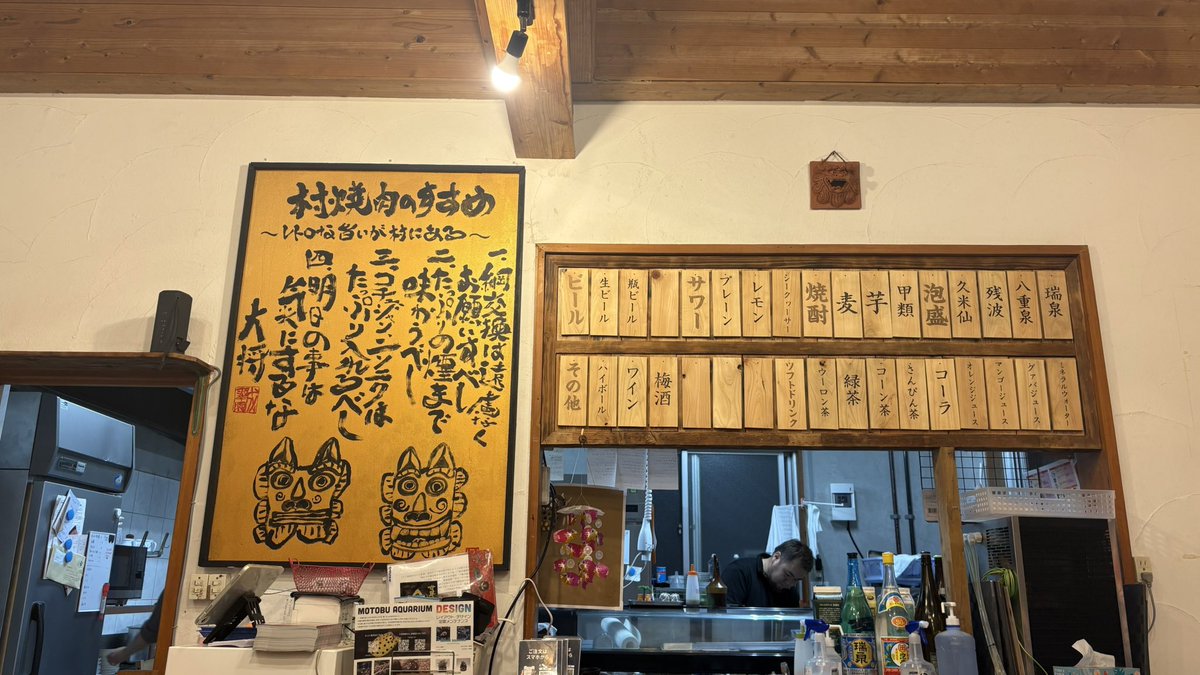 村焼肉のすすめ
一、網交換は遠慮なく
お願いすべし
二、たっぷりの煙まで
味わうべし
三、コチジャン、ニンニクは
たっぷり入れるべし
四、明日の事は
気にするな
大将
ビール
生ビール
瓶ビール
サワー
プレーン
レモン
シークヮーサー
焼酎
麦
芋
甲類
泡盛
久米仙
残波
八重泉
瑞泉
その他
ハイボール
ワイン
梅酒
ソフトドリンク
ウーロン茶
緑茶
コーン茶
さんぴん茶
コーラ
オレンジジュース
マンゴージュース
グァバジュース
ミネラルウォーター
MOTOBU AQUARIUM DESIGN
ご注文は
スマホから
瑞泉